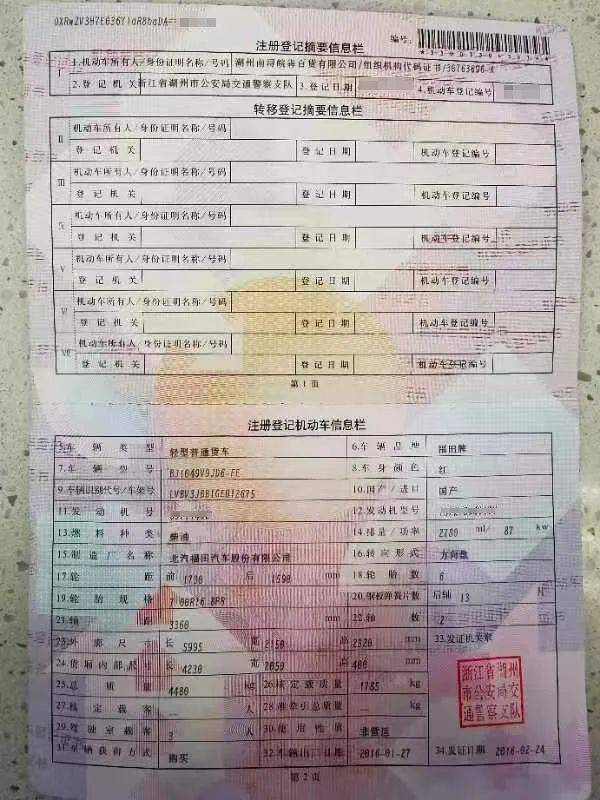 注册登记摘要信息栏
编号:
I
1.机动车所有人/身份证明名称/号码 湖州南浔 百货有限公司/组织机构代码证书/
2.登记机关 浙江省湖州市公安局交通警察支队 3.登记日期 4.机动车登记编号
转移登记摘要信息栏
II 机动车所有人/身份证明名称/号码
登记机关 登记日期 机动车登记编号
III 机动车所有人/身份证明名称/号码
登记机关 登记日期 机动车登记编号
机动车所有人/身份证明名称/号码
登记机关 登记日期 机动车登记编号
V 机动车所有人/身份证明名称/号码
登记机关 登记日期 机动车登记编号
VI 机动车所有人/身份证明名称/号码
登记机关 登记日期 机动车登记编号
VII 机动车所有人/身份证明名称/号码
登记机关 登记日期 机动车登记编号
第1页
注册登记机动车信息栏
5.车辆类型 轻型普通货车 6.车辆品牌 福田牌
7.车辆型号 8.车身颜色 红
9.车辆识别代号/车架号 10.国产/进口 国产
11.发动机号 12.发动机型号
13.燃料种类 柴油 14.排量/功率 2780 ml/ 87 kw
15.制造厂名称 北汽福田汽车股份有限公司 16.转向形式 方向盘
17.轮距 前 1730 后 1590 mm 18.轮胎数 6
19.轮胎规格 7.00R16 8PR 20.钢板弹簧片数 后轴 13 片
21.轴距 3360 mm 22.轴数 2
23.外廓尺寸 长 5995 宽 高 2320 mm 33.发证机关章
24.货厢内部尺寸 长 4230 宽 2050 高 400 mm
25.总质量 4480 kg 26.核定载质量 1785 kg
27.核定载客 — 人 28.准牵引总质量 — kg
浙江省湖州
市公安局交
通警察支队
29.驾驶室载客 人 30.使用性质 非营运
31.车辆获得方式 购买 32.车辆出厂日期 2016-01-27 34.发证日期 2016-02-24
第2页